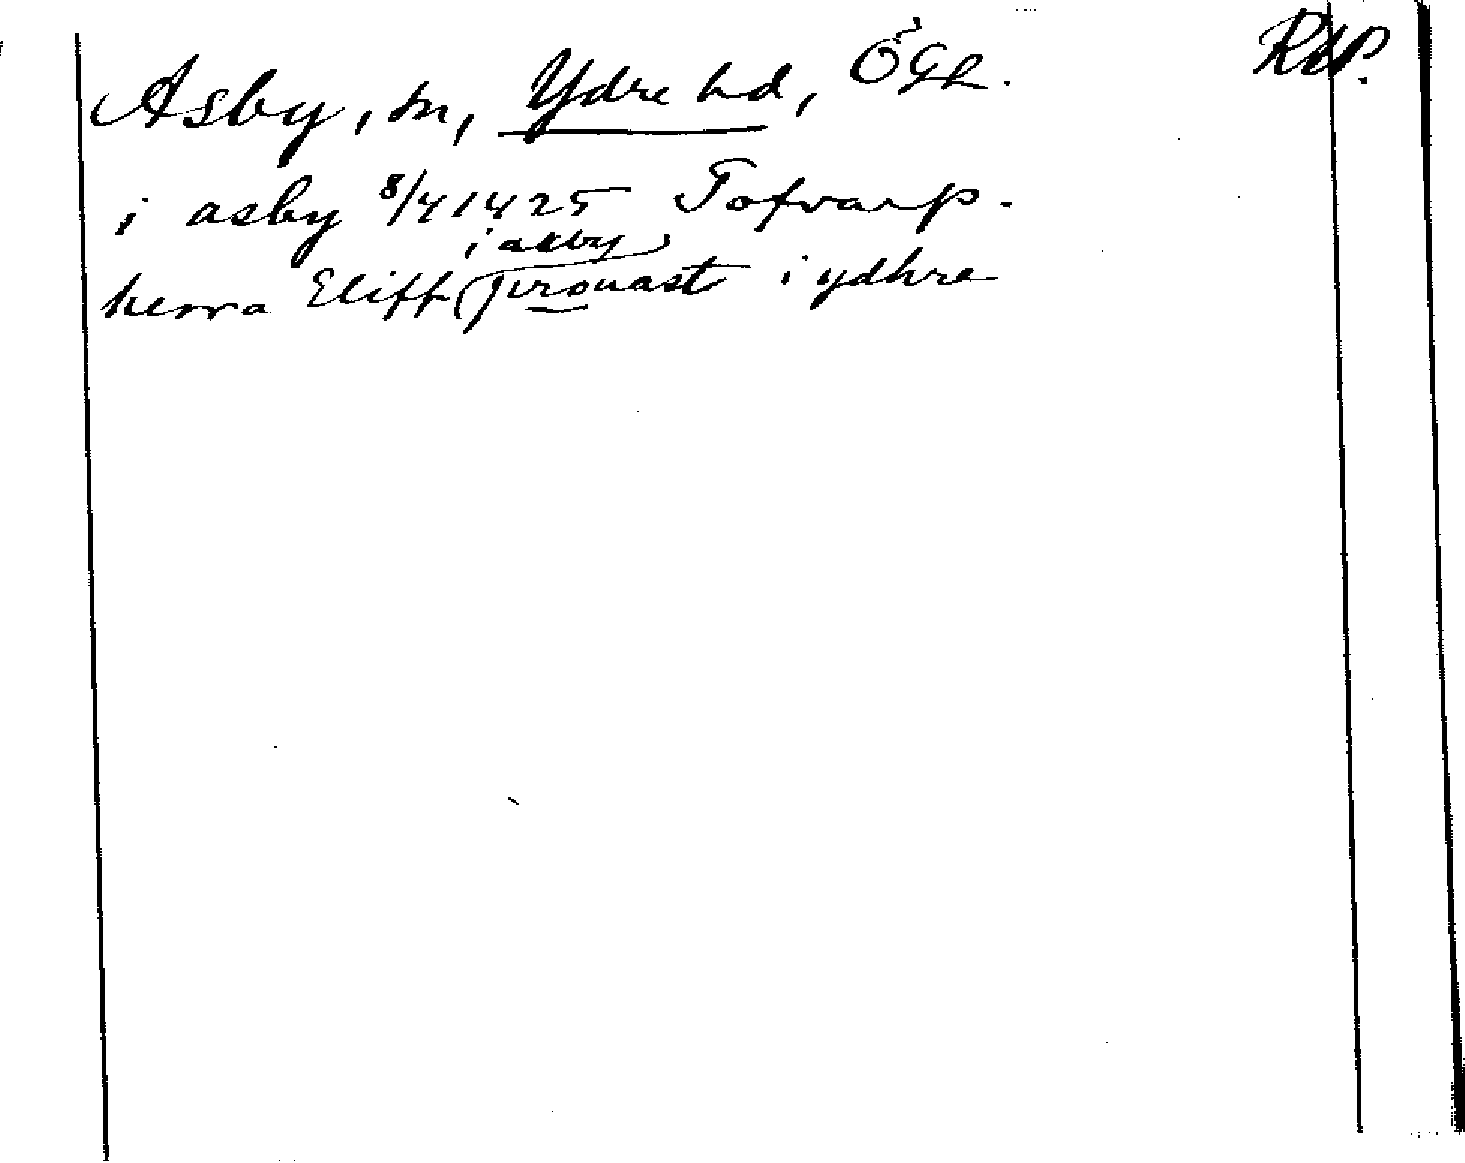 Asby, sn, Ydre hd, Ögl. Rep.
i asby 8/4 1425 Tofvarp.
i asby
herra Eliff (prouast i ydhre